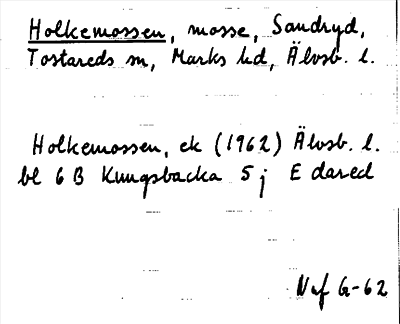 Holkemossen, mosse, Sandryd,
Tostareds sn, Marks hd, Älvsb. l.
Holkemossen, ek (1962) Älvsb. l.
bl 6 B Kungsbacka 5 j Edared
NaF G-62